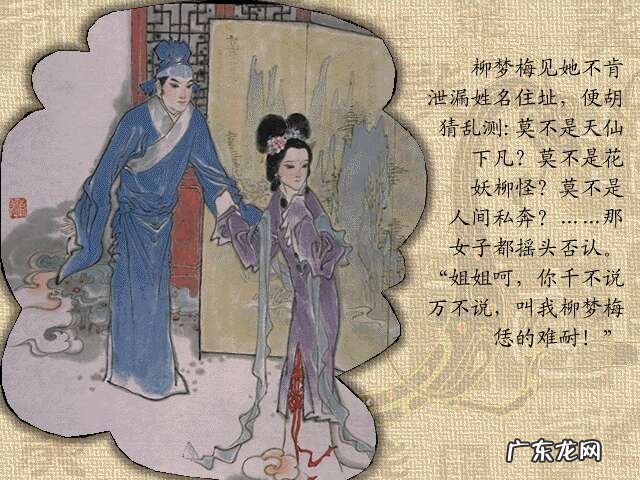 柳梦梅见她不肯
泄漏姓名住址，便胡
猜乱测: 莫不是天仙
下凡？莫不是花
妖柳怪？莫不是
人间私奔？……那
女子都摇头否认。
“姐姐呵，你千不说
万不说，叫我柳梦梅
恁的难耐！”
广东龙网